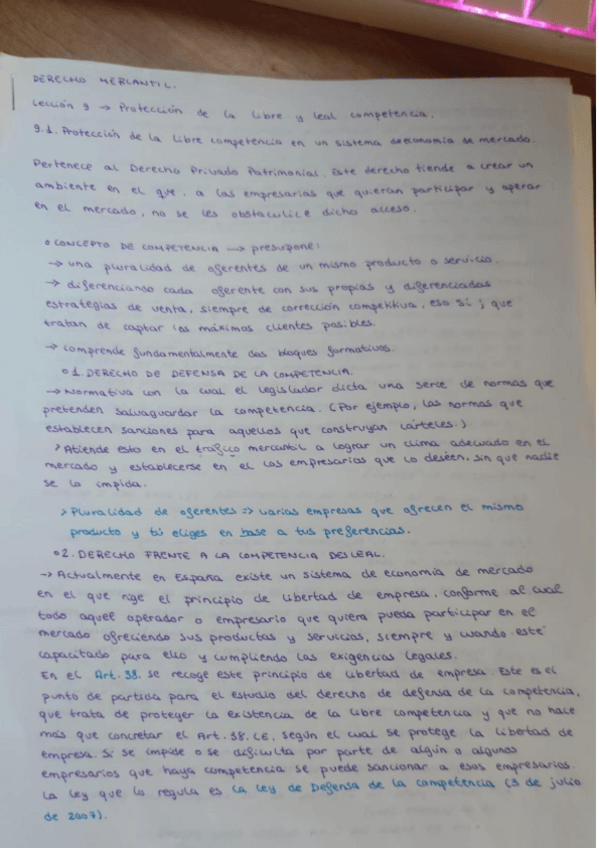 DERECHO MERCANTIL.
Lección 9 → Protección de la libre y leal competencia.
9.1. Protección de la libre competencia en un sistema de economía de mercado.
Pertenece al Derecho Privado Patrimonial. Este derecho tiende a crear un
ambiente en el que, a los empresarios que quieran participar y operar
en el mercado, no se les obstaculice dicho acceso.
o CONCEPTO DE COMPETENCIA → presupone:
→ una pluralidad de oferentes de un mismo producto o servicio.
→ diferenciando cada oferente con sus propias y diferenciadas
estrategias de venta, siempre de corrección competitiva, eso sí; que
tratan de captar los máximos clientes posibles.
→ comprende fundamentalmente dos bloques formativos.
o 1. DERECHO DE DEFENSA DE LA COMPETENCIA.
→ Normativa con la cual el legislador dicta una serie de normas que
pretenden salvaguardar la competencia. (Por ejemplo, las normas que
establecen sanciones para aquellos que construyan cárteles.)
> Atiende esto en el tráfico mercantil a lograr un clima adecuado en el
mercado y establecerse en el los empresarios que lo deseen, sin que nadie
se lo impida.
> Pluralidad de oferentes => varias empresas que ofrecen el mismo
producto y tú eliges en base a tus preferencias.
o 2. DERECHO FRENTE A LA COMPETENCIA DESLEAL.
→ Actualmente en España existe un sistema de economía de mercado
en el que rige el principio de libertad de empresa, conforme al cual
todo aquel operador o empresario que quiera pueda participar en el
mercado ofreciendo sus productos y servicios, siempre y cuando esté
capacitado para ello y cumpliendo las exigencias legales.
En el Art. 38. se recoge este principio de libertad de empresa. Este es el
punto de partida para el estudio del derecho de defensa de la competencia,
que trata de proteger la existencia de la libre competencia y que no hace
más que concretar el Art. 38. CE, según el cual se protege la libertad de
empresa. Si se impide o se dificulta por parte de algún o algunos
empresarios que haya competencia se puede sancionar a esos empresarios.
La ley que lo regula es la Ley de Defensa de la competencia (3 de julio
de 2007).